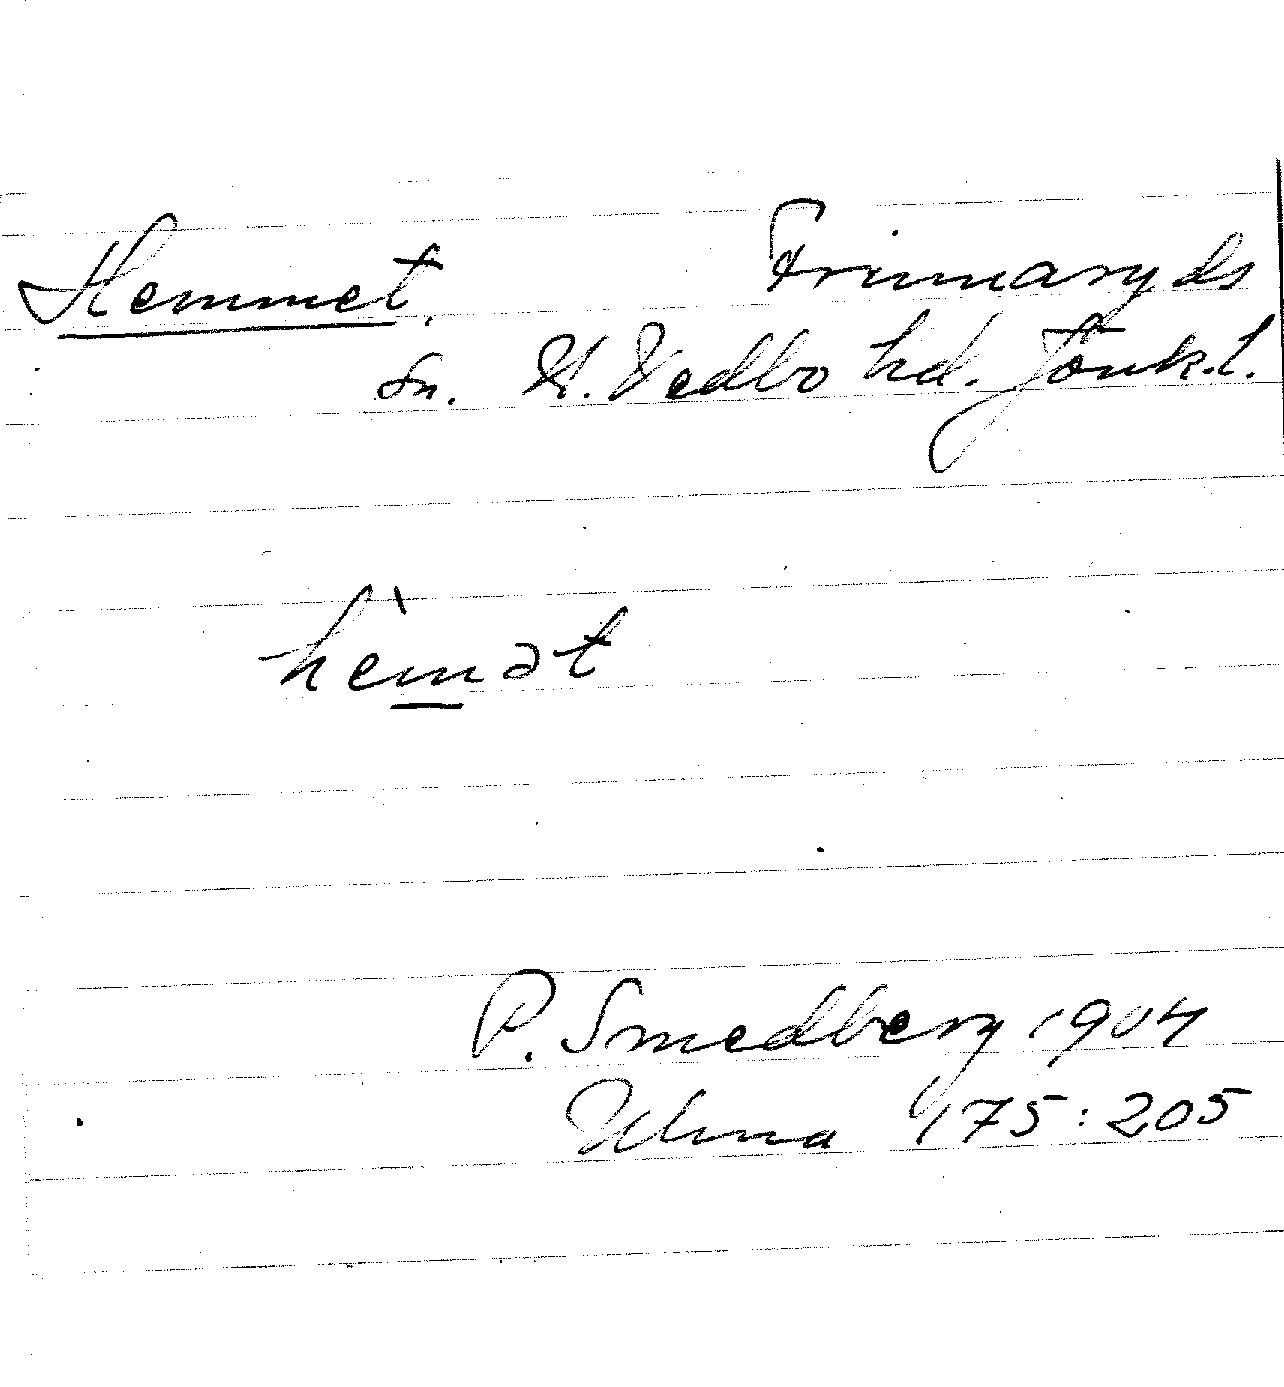 Hemmet. Frinnaryds
sn. N. Vedbo hd. Jönk. l.
hèmət
P. Smedberg 1904
Ulma 175:205